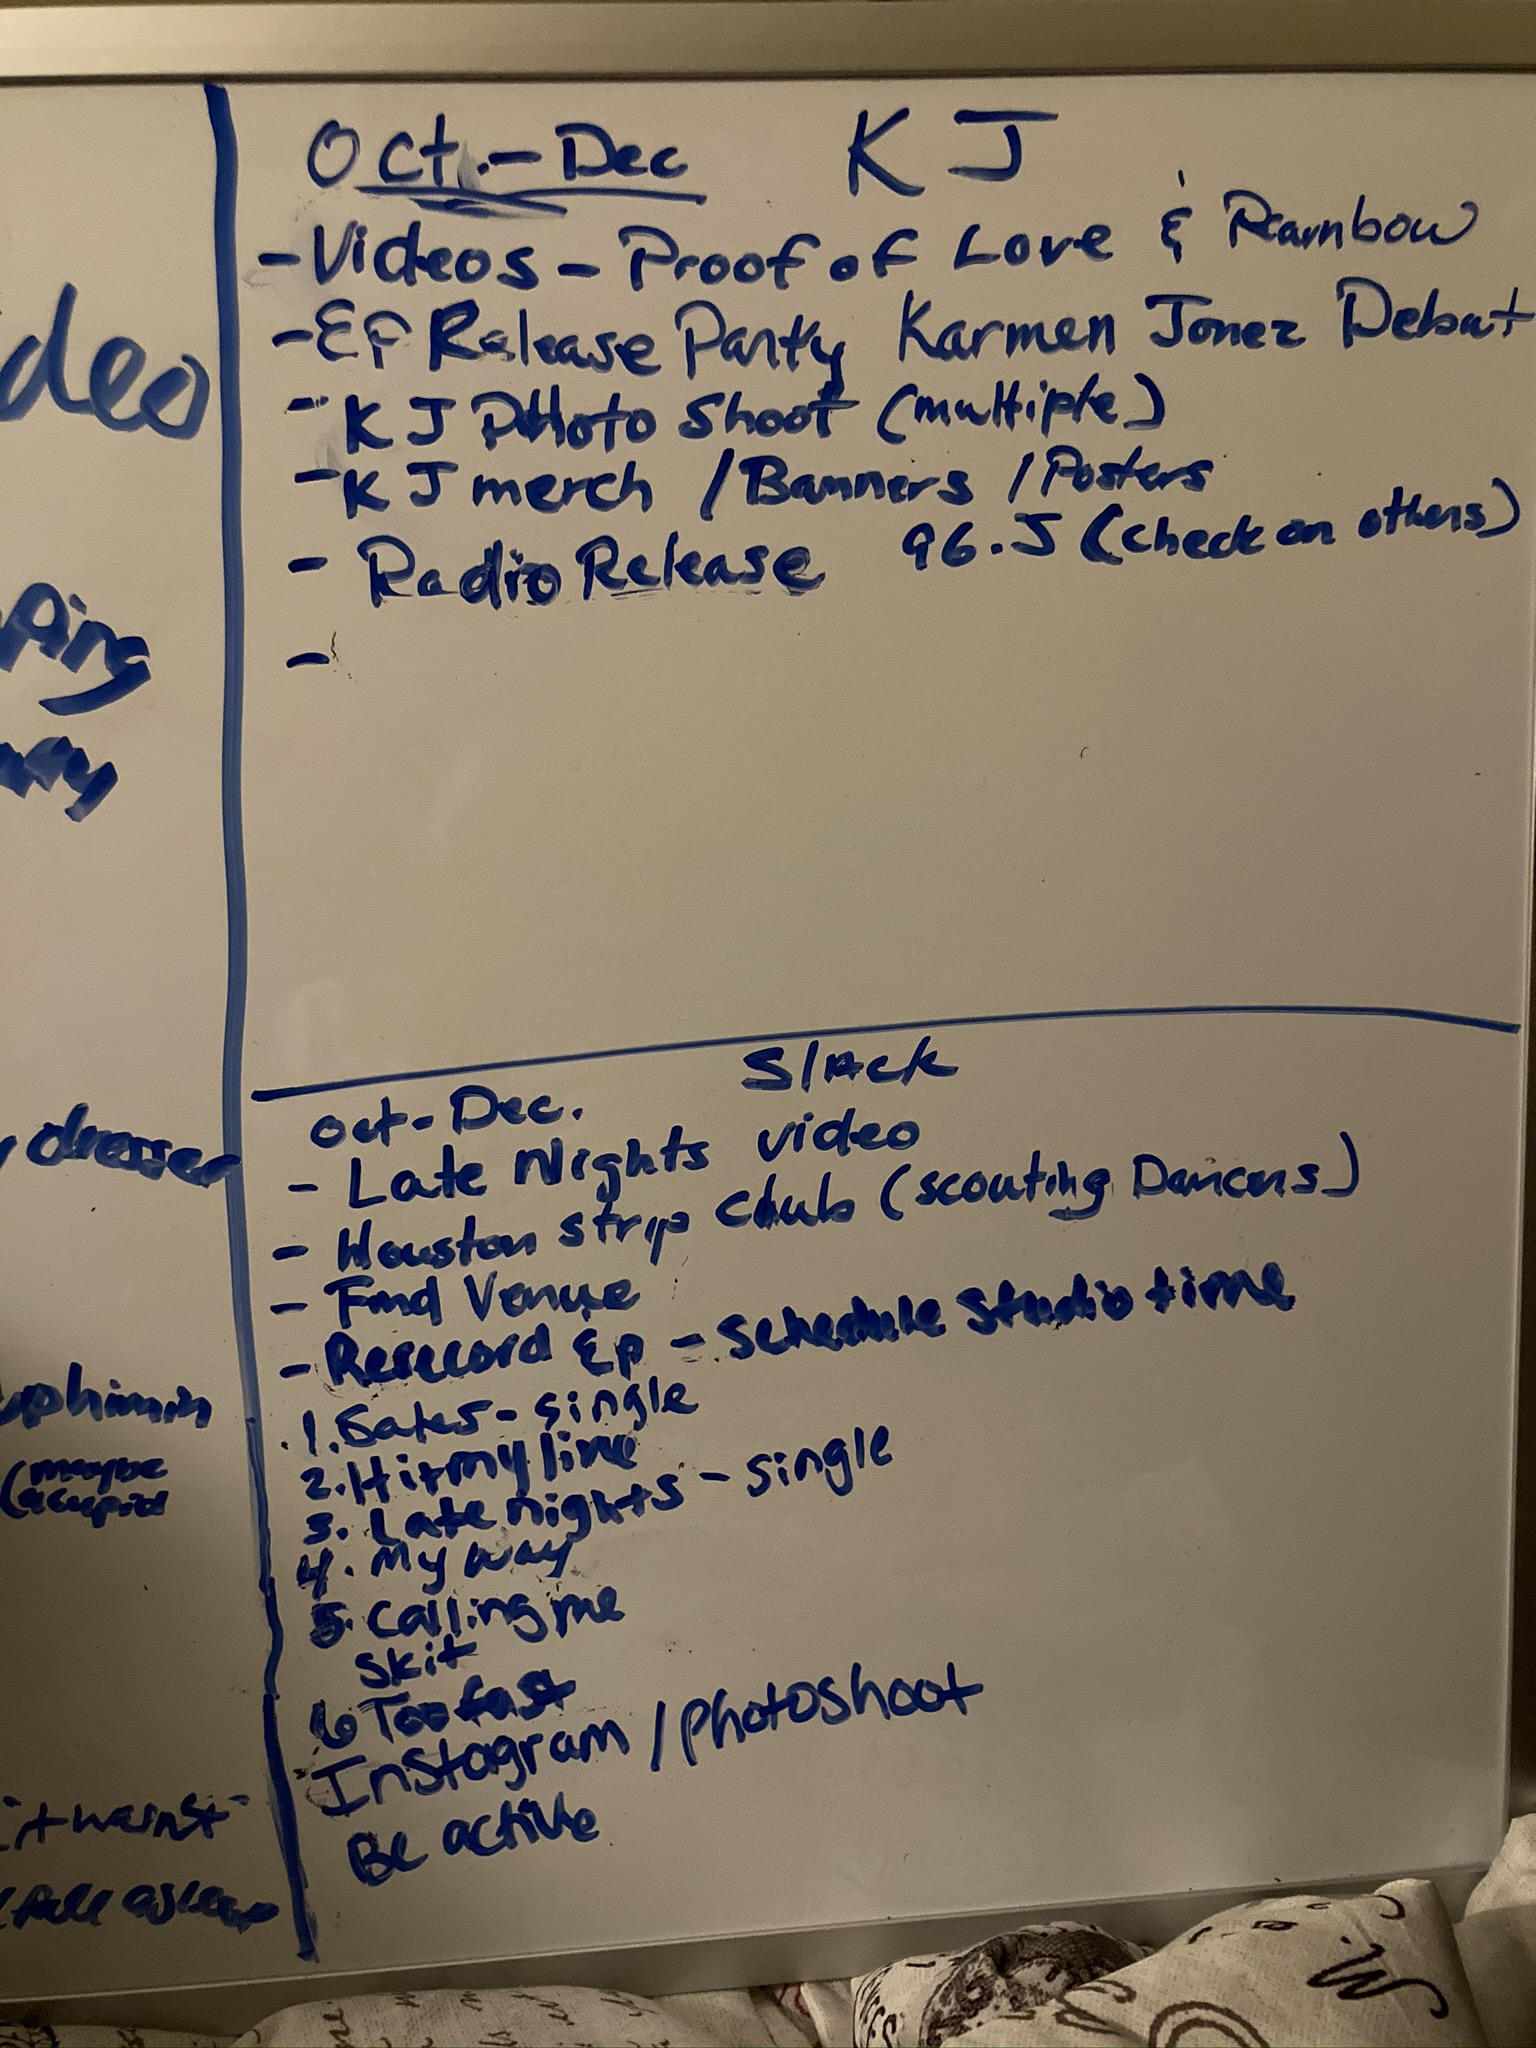 Oct.-Dec KJ
- Videos - Proof of Love & Rainbow
- EP Release Party Karmen Jonez Debut
- KJ PHoto Shoot (multiple)
- KJ merch / Banners / Posters
- Radio Release 96.5 (check on others)
-
Slack
Oct-Dec.
- Late Nights video
- Houston strip club (scouting Dancers)
- Find Venue
- Rerecord Ep - schedule studio time
1. - single
2. Hit my line
3. Late nights - single
4. My way
5. Calling me
skit
6 Too fast
Instagram / photoshoot
Be active
deo
ping
dresser
(maybe
it wasn't
asleep